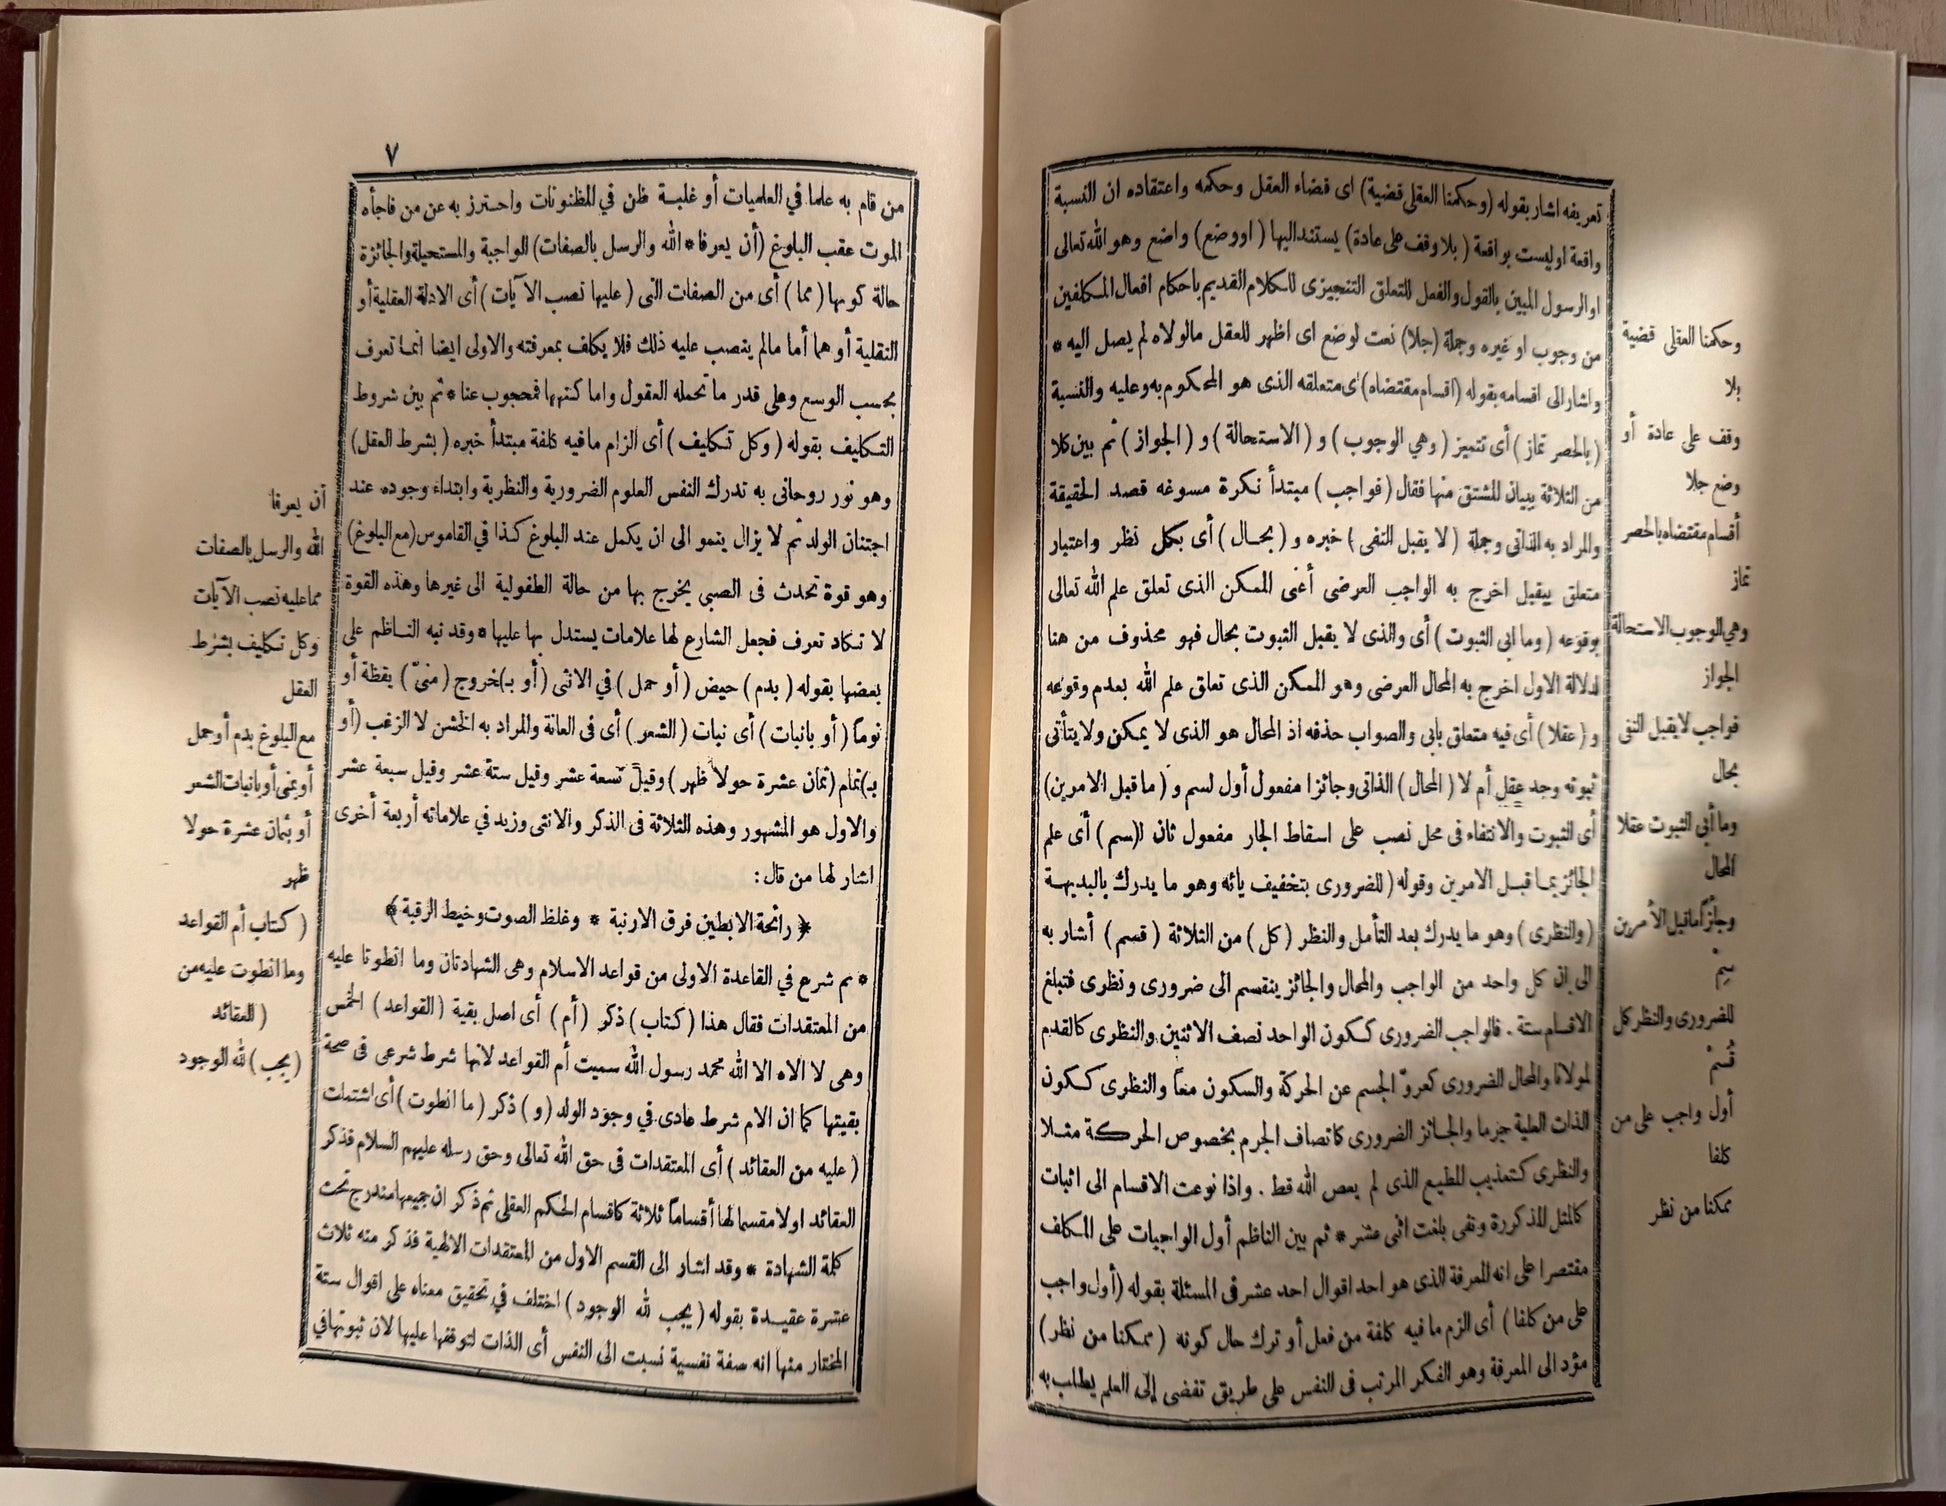 تعريفه اشار بقوله (وحكمنا العقلى قضية) اى قضاء العقل وحكمه واعتقاده ان النسبة
واقعة اوليست بواقعة ( بلا وقف على عادة) يستند اليها ( اووضع) واضع وهو الله تعالى
او الرسول المبين بالقول والفعل للتعلق التنجيزى للكلام القديم باحكام افعال المكلفين
من وجوب او غيره وجملة (جلا) نعت لوضع اى اظهر للعقل مالولاه لم يصل اليه *
واشار الى اقسامه بقوله (اقسام مقتضاه) اى متعلقه الذى هو المحكوم به وعليه والنسبة
(بالحصر تماز ) أى تتميز ( وهي الوجوب ) و ( الاستحالة ) و ( الجواز ) ثم بين كلا
من الثلاثة ببيان المشتق منها فقال ( فواجب ) مبتدأ نكرة مسوغه قصد الحقيقة
والمراد به الذاتى وجملة ( لا يقبل النفى ) خبره و ( بحال ) أى بكل نظر واعتبار
متعلق بيقبل اخرج به الواجب العرضى أعنى الممكن الذى تعلق علم الله تعالى
بوقوعه ( وما ابى الثبوت ) أى والذى لا يقبل الثبوت بحال فهو محذوف من هنا
لدلالة الاول اخرج به المحال العرضى وهو الممكن الذى تعلق علم الله بعدم وقوعه
و ( عقلا ) أى فيه متعلق بابى والصواب حذفه اذ المحال هو الذى لا يمكن ولا يتأتى
ثبوته وجد عقل أم لا ( المحال ) الذاتى وجائزا مفعول أول لسم و ( ما قبل الامرين)
أى الثبوت والانتفاء فى محل نصب على اسقاط الجار مفعول ثان ل(سم ) أى علم
الجائز بما قبل الامرين وقوله ( للضرورى بتخفيف يائه وهو ما يدرك بالبديهة
(والنظرى ) وهو ما يدرك بعد التأمل والنظر ( كل ) من الثلاثة ( قسم ) أشار به
الى ان كل واحد من الواجب والمحال والجائز ينقسم الى ضرورى ونظرى فتبلغ
الاقسام ستة . فالواجب الضرورى ككون الواحد نصف الاثنين والنظرى كالقدم
لمولانا والمحال الضرورى كعروّ الجسم عن الحركة والسكون معاً والنظرى ككون
الذات العلية جرما والجائز الضرورى كاتصاف الجرم بخصوص الحركة مثلا
والنظرى كتعذيب المطيع الذى لم يعص الله قط . واذا نوعت الاقسام الى اثبات
كالمثل المذكورة ونفى بلغت اثنى عشر * ثم بين الناظم أول الواجبات على المكلف
مقتصرا على انه المعرفة الذى هو احد اقوال احد عشر فى المسئلة بقوله (أول واجب
على من كلفا ) أى الزم ما فيه كلفة من فعل أو ترك حال كونه ( ممكنا من نظر )
مؤد الى المعرفة وهو الفكر المرتب فى النفس على طريق تفضى إلى العلم يطلب به
وحكمنا العقلى قضية
بلا
وقف على عادة أو
وضع جلا
أقسام مقتضاه بالحصر
تماز
وهي الوجوب الاستحالة
الجواز
فواجب لا يقبل النفى
بحال
وما أبى الثبوت عقلا
المحال
وجائزا ما قبل الأمرين
سِمْ
للضرورى والنظر كل
قُسِمْ
أول واجب على من
كلفا
ممكنا من نظر
٧
من قام به علما في العلميات أو غلبة ظن في المظنونات واحترز به عن من فاجأه
الموت عقب البلوغ (أن يعرفا * الله والرسل بالصفات) الواجبة والمستحيلة والجائزة
حالة كونها ( مما ) أى من الصفات التى ( عليها نصب الآيات ) أى الادلة العقلية أو
النقلية أو هما أما مالم ينصب عليه ذلك فلا يكلف بمعرفته والاولى ايضا انما تعرف
بحسب الوسع وعلى قدر ما تحمله العقول واما كنهها فمحجوب عنا * ثم بين شروط
التكليف بقوله ( وكل تكليف ) أى الزام ما فيه كلفة مبتدأ خبره ( بشرط العقل)
وهو نور روحانى به تدرك النفس العلوم الضرورية والنظرية وابتداء وجوده عند
اجتنان الولد ثم لا يزال ينمو الى ان يكمل عند البلوغ كذا في القاموس (مع البلوغ)
وهو قوة تحدث فى الصبي يخرج بها من حالة الطفولية الى غيرها وهذه القوة
لا تكاد تعرف فجعل الشارع لها علامات يستدل بها عليها * وقد نبه الناظم على
بعضها بقوله ( بدم ) حيض ( أو حمل ) في الانثى ( أو ب)خروج ( منىّ ) يقظة أو
نوماً ( أو بانبات ) أى نبات ( الشعر ) أى فى العانة والمراد به الخشن لا الزغب ( أو
ب)تمام ( ثمان عشرة حولا ظهر ) وقيل تسعة عشر وقيل ستة عشر وقيل سبعة عشر
والاول هو المشهور وهذه الثلاثة فى الذكر والانثى وزيد في علاماته أربعة أخرى
اشار لها من قال :
﴿ رائحة الابطين فرق الارنبة * وغلظ الصوت وخيط الرقبة ﴾
* ثم شرع في القاعدة الاولى من قواعد الاسلام وهى الشهادتان وما انطوتا عليه
من المعتقدات فقال هذا ( كتاب ) ذكر ( أم ) أى اصل بقية ( القواعد ) الخمس
وهى لا الاه الا الله محمد رسول الله سميت أم القواعد لانها شرط شرعى فى صحة
بقيتها كما ان الام شرط عادى في وجود الولد ( و ) ذكر ( ما انطوت ) أى اشتملت
( عليه من العقائد ) أى المعتقدات فى حق الله تعالى وحق رسله عليهم السلام فذكر
العقائد اولا مقسما لها أقساماً ثلاثة كاقسام الحكم العقلى ثم ذكر ان جميعها مندرج تحت
كلمة الشهادة * وقد اشار الى القسم الاول من المعتقدات الالهية فذكر منه ثلاث
عشرة عقيدة بقوله ( يجب لله الوجود ) اختلف في تحقيق معناه على اقوال ستة
المختار منها انه صفة نفسية نسبت الى النفس أى الذات لتوقفها عليها لان ثبوتها في
أن يعرفا
الله والرسل بالصفات
مما عليه نصب الآيات
وكل تكليف بشرط
العقل
مع البلوغ بدم أو حمل
أو بمنى أو بانبات الشعر
أو بثمان عشرة حولا
ظهر
( كتاب أم القواعد
وما انطوت عليه من
العقائد )
(يجب ) لله الوجود